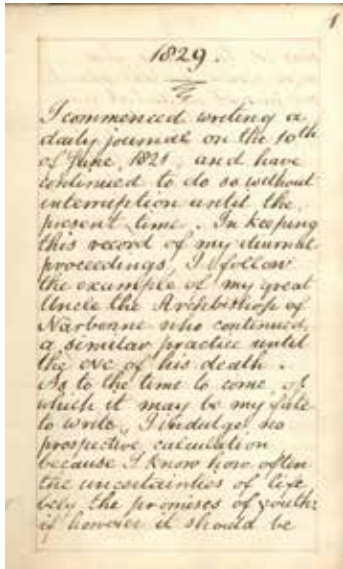 1
1829.
I commenced writing a
daily journal on the 10th
of June, 1821, and have
continued to do so without
interruption until the
present time. In keeping
this record of my diurnal
proceedings, I follow
the example of my great
Uncle the Archbishop of
Narbonne who continued
a similar practice until
the eve of his death.
As to the time to come, of
which it may be my fate
to write, I indulge no
prospective calculation
because I know how often
the uncertainties of life
bely the promises of youth:
if however it should be